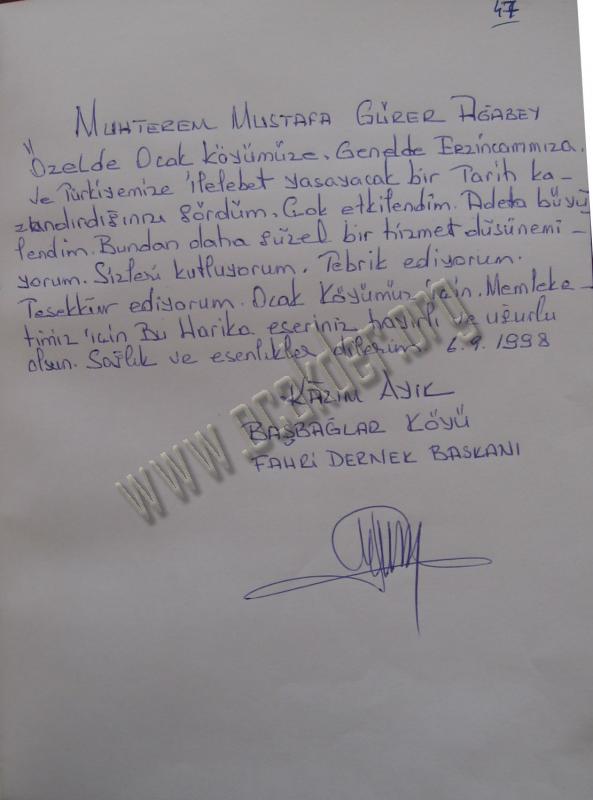 47
MUHTEREM MUSTAFA GÜRER AĞABEY
Özelde Ocak Köyümüze, Genelde Erzincanımıza,
ve Türkiyemize ilelebet yaşayacak bir Tarih ka-
zandırdığınızı gördüm. Çok etkilendim. Adeta büyü
lendim. Bundan daha güzel bir hizmet düşünemi-
yorum. Sizleri kutluyorum. Tebrik ediyorum.
Teşekkür ediyorum. Ocak Köyümüz için, Memleke-
timiz için Bu Harika eseriniz hayırlı ve uğurlu
olsun. Sağlık ve esenlikler dilerim. 6.9.1998
KÂZIM AYIK
BAŞBAĞLAR KÖYÜ
FAHRİ DERNEK BAŞKANI
www.ocakder.org